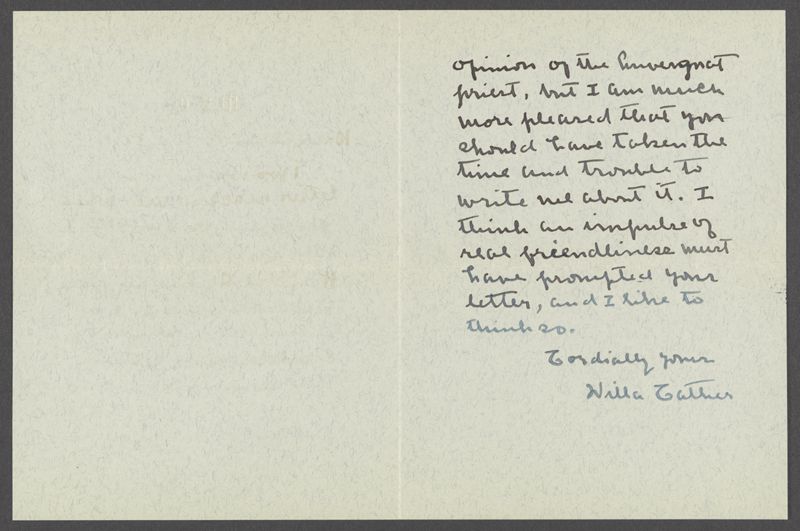 opinion of the Auvergnat
priest, but I am much
more pleased that you
should have taken the
time and trouble to
write me about it. I
think an impulse of
real friendliness must
have prompted your
letter, and I like to
think so.
Cordially yours
Willa Cather